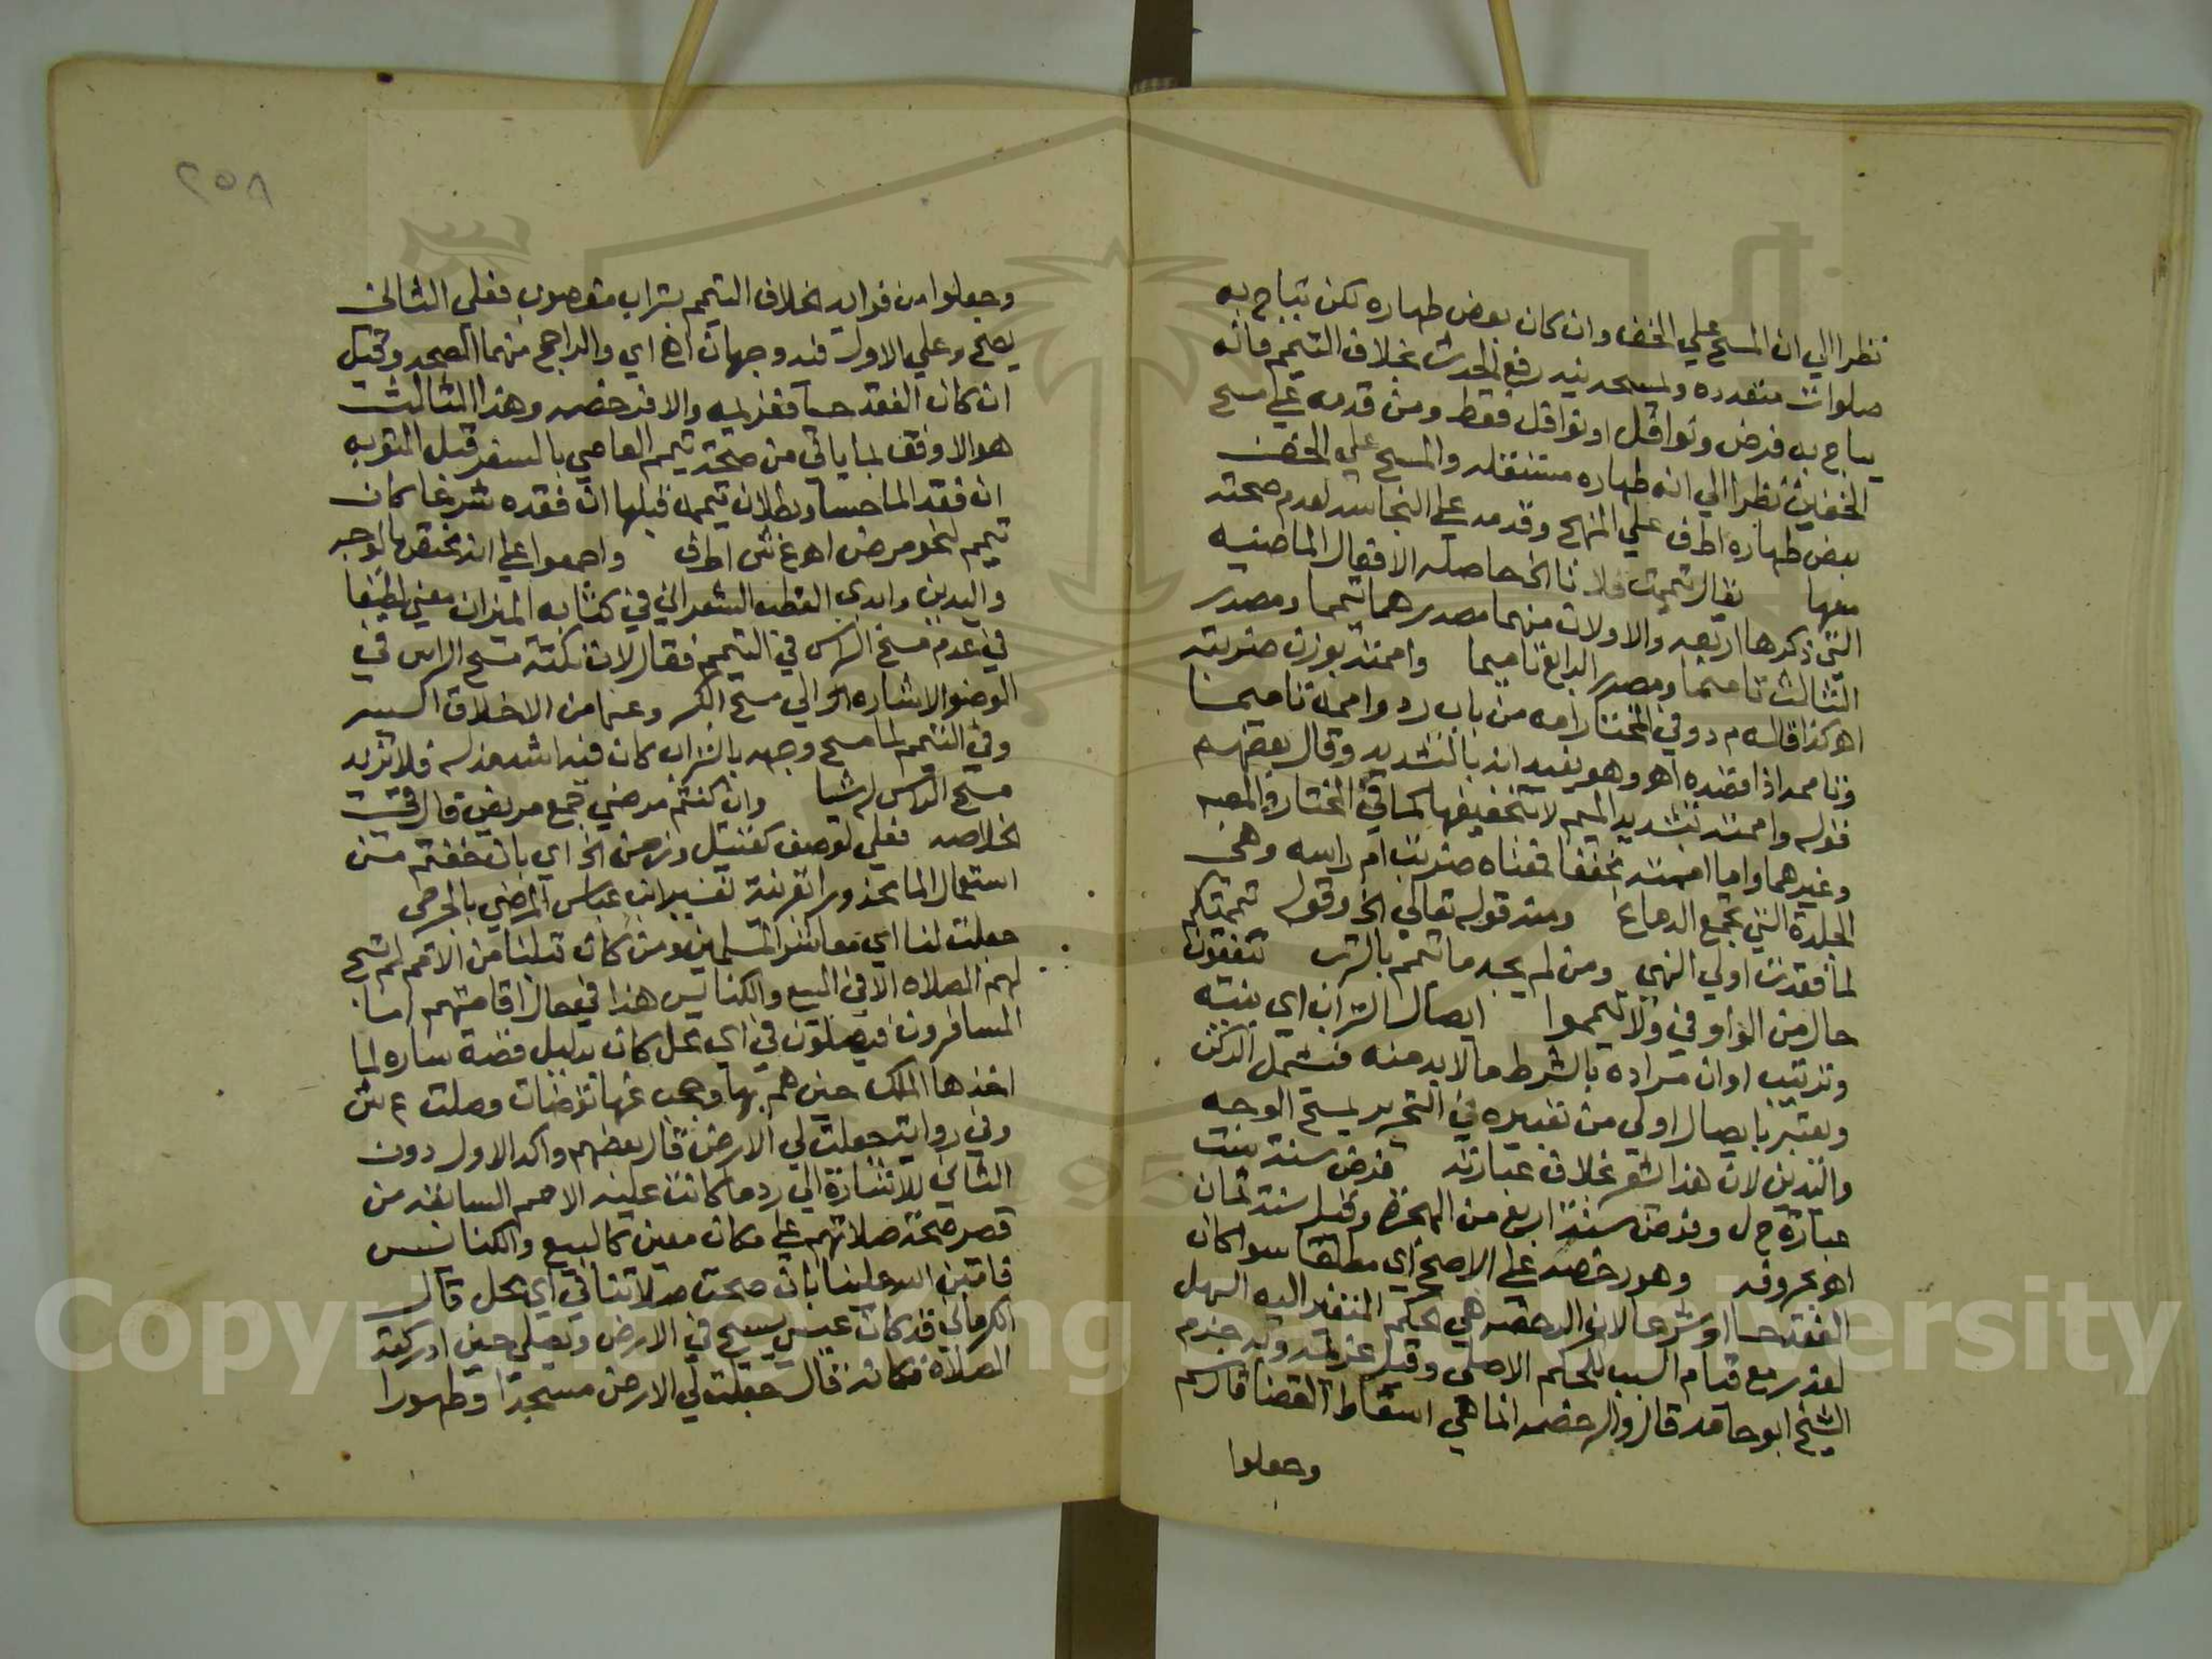 نظرا الي ان المسح علي الخف وان كان بعض طهاره لكن تباح به
صلوات متعدده ولمسحه يفيد رفع الحدث بخلاف التيمم فانه
يباح به فرض ونوافل او نوافل فقط ومن قدمه علي مسح
الخفين نظرا الي انه طهاره مستقله والمسح علي الخف
بعض طهاره اطف علي المنهج وقدمه علي النجاسه لعدم صحته
معها يقال تيممت فلانا الخ حاصله الافعال الماضيه
التي ذكرها اربعه والاولان منهما مصدرهما تيمما ومصدر
الثالث تاميما ومصدر الرابع تاميما واممته بوزن ضربته
اهـ كذا قاله م د وفي المختار امه من باب رد واممه تاميما
وتاممه اذا قصده اهـ وهو يفيد انه بالتشديد وقال بعضهم
قوله واممته بتشديد الميم لا بتخفيفها كما في المختار والمصبـ
وغيرهما واما اممته مخففا فمعناه ضربت ام راسه وهي
الجلدة التي تجمع الدماغ ومنه قوله تعالي الخ وقوله تيممتكم
لما فقدت اولي النهي ومن لم يجد ما تيمم بالترب تنفقون
حال من الواو في ولا تيمموا ايصال التراب اي بنيته
وترتيب او ان مراده بالشرط ما لا بد منه فشمل الركن
ويعتبر بايصال اولي من تعبيره في التحرير بمسح الوجه
واليدين لان هذا اشعر بخلاف عبارته فرض سنة ست
عبارة ح ل وفرض سنة اربع من الهجرة وقيل سنة ثمان
اهـ بحروفه وهو رخصه علي الاصح اي مطلقا سوا كان
الفقد حسا او شرعا لان الرخصه هي الحكم المتغير اليه السهل
لعذر مع قيام السبب للحكم الاصلي وقيل عزيمة وبه جزم
الشيخ ابو حامد قال والرخصه انما هي اسقاط القضا قاله م
وجعلوا
٢٥٨
وجعلوا من فوايد الخلاف التيمم بتراب مغصوب فعلي الثاني
يصح وعلي الاول فيه وجهان اهـ اي والراجح منهما الصحه وقيل
ان كان الفقد حسا فعزيمه والا فرخصه وهذا الثالث
هو الاوفق لما ياتي من صحة تيمم العاصي بالسفر قبل التوبه
ان فقد الما حسا وبطلان تيممه قبلها ان فقده شرعا كان
تيمم لنحو مرض اهـ ع ش اطف واجمعوا علي انه مختص بالوجه
واليدين وابدي القطب الشعراني في كتابه الميزان معني لطيفا
في عدم مسح الراس في التيمم فقال لان نكتة مسح الراس في
الوضو الاشاره الي مسح الكبر وغيره من الاخلاق السيه
وفي التيمم لما مسح وجهه بالتراب كان فيه اشد مذله فلا تزيد
مسح الراس له شيا وان كنتم مرضي جمع مريض قال في
الخلاصه فعلي لوصف كقتيل وزمن الخ اي بان خفتم من
استعمال الما محذورا بقرينة تفسير ابن عباس المرضي بالجرحي
جعلت لنا اي معاشر المسلمين ومن كان قبلنا من الامم لم تبح
لهم الصلاه الا في البيع والكنايس هذا في حال اقامتهم اما
المسافرون فيصلون في اي محل كان بدليل قصة ساره لما
اخذها الملك حين هم بها وحجب عنها توضات وصلت ع ش
وفي رواية جعلت لي الارض قال بعضهم واكد الاول دون
الثاني للاشارة الي رد ما كانت عليه الامم السابقه من
قصر صحة صلاتهم علي مكان معين كالبيع والكنايس
فامتن الله علينا بان صحت صلاتنا في اي محل قال
الكرماني قد كان عيسي يسيح في الارض ويصلي حين ادركته
الصلاة فكانه قال جعلت لي الارض مسجدا وطهورا